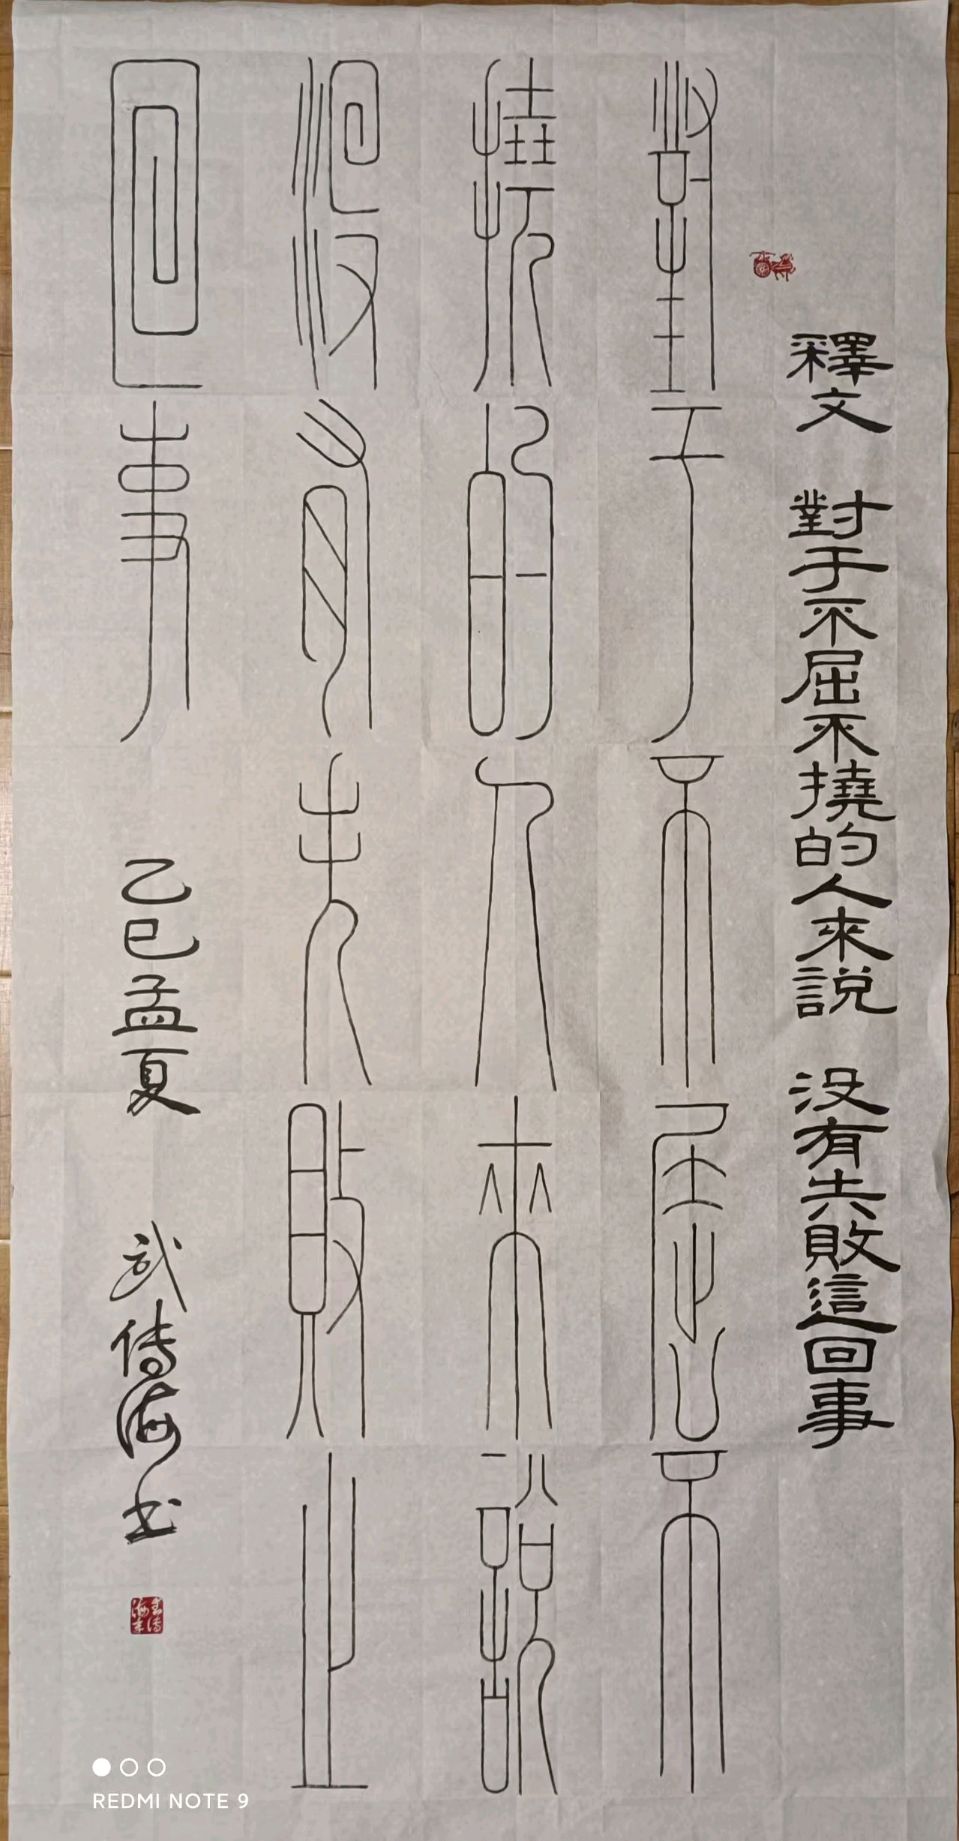 釋文 對于不屈不撓的人來說 没有失敗這回事
對于不屈不
撓的人來說
没有失敗
回事
乙巳孟夏 武传海书
REDMI NOTE 9